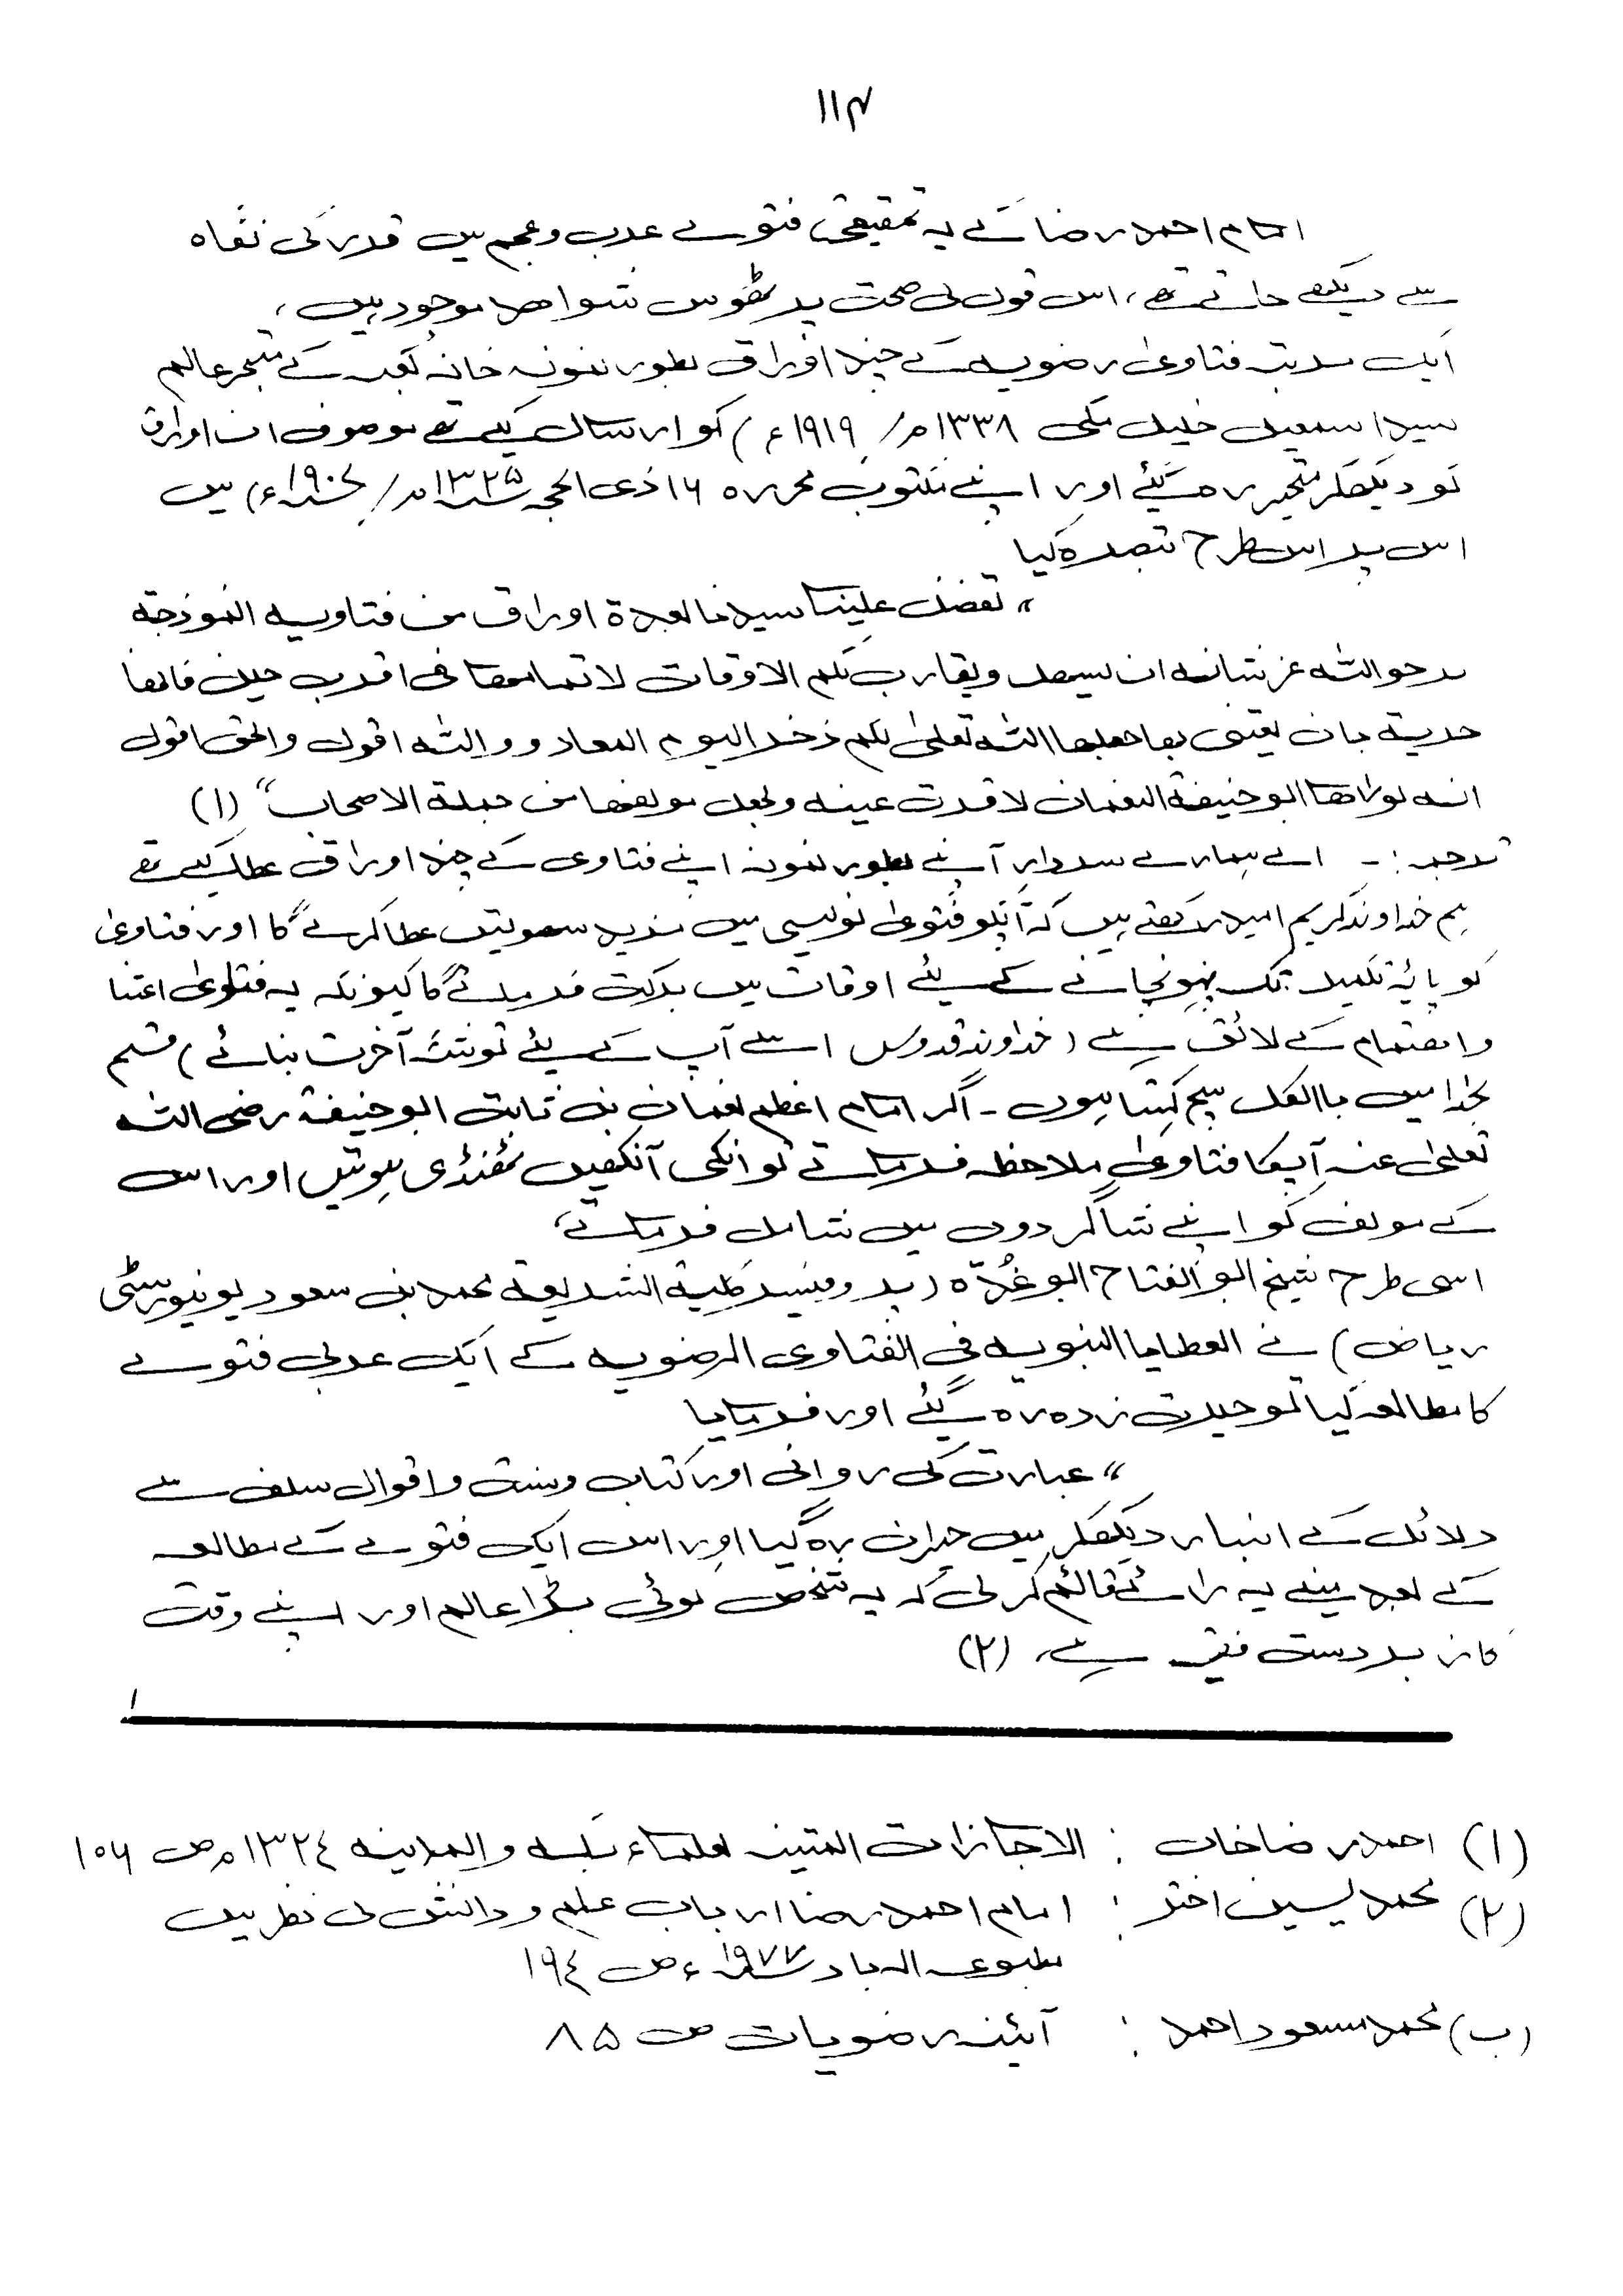 ۱۱۴
امام احمد رضا کے یہ تحقیقی فتوے عرب و عجم میں قدر کی نگاہ
سے دیکھے جاتے تھے، اس قول کی صحت پر ٹھوس شواھد موجود ہیں،
ایک مرتبہ فتاویٰ رضویہ کے چند اوراق بطور نمونہ خانہ کعبہ کے متبحر عالم
سید اسمعیل خلیل مکی ۱۳۳۸ھ/ ۱۹۱۹ء) کو ارسال کیے تھے موصوف ان اوراق
کو دیکھکر متحیر رہ گئے اور اپنے مکتوب محررہ ۱۶ ذی الحجہ ۱۳۲۵ھ/ ۱۹۰۷ء) میں
اس پر اس طرح تبصرہ کیا
" تفضل علینا سیدنا بعدۃ اوراق من فتاویہ انموذجۃ
نرجو اللہ عز شانہ ان یسھل ویقارب لکم الاوقات لاتمامھا فی اقرب حین فانھا
حریۃ بان یعتنی بھا جعلھا اللہ تعلیٰ لکم ذخرا لیوم المعاد و واللہ اقول والحق اقول
انہ لو راٰھا ابو حنیفۃ النعمان لاقرت عینہ ولجعل مولفھا من جملۃ الاصحاب" (۱)
ترجمہ :۔ اے ہمارے سردار آپنے بطور نمونہ اپنے فتاوی کے چند اوراق عطا کیے تھے
ہم خداوند کریم امید رکھتے ہیں کہ آپکو فتویٰ نویسی میں مزید سہولتیں عطا کرے گا اور فتاویٰ
کو پائۂ تکمیل تک پہونچانے کے لیئے اوقات میں برکت فرمائے گا کیونکہ یہ فتاویٰ اعتنا
و اھتمام کے لائق ہے (خداوند قدوس اسے آپ کے لیئے توشۂ آخرت بنائے) قسم
بخدا میں باالکل سچ کہتا ہوں ۔ اگر امام اعظم نعمان بن ثابت ابو حنیفۃ رضی اللہ
تعلیٰ عنہ آپکا فتاویٰ ملاحظہ فرماتے تو انکی آنکھیں ٹھنڈی ہوتیں اور اس
کے مولف کو اپنے شاگردوں میں شامل فرماتے،
اسی طرح شیخ ابو الفتاح ابو غُدّہ (پروفیسر کلیۃ الشریعۃ محمد بن سعود یونیورسٹی
ریاض) نے العطایا النبویہ فی الفتاوی الرضویہ کے ایک عربی فتوے
کا مطالعہ کیا تو حیرت زدہ رہ گئے اور فرمایا
" عبارت کی روانی اور کتاب و سنت و اقوال سلف سے
دلائل کے انبار دیکھکر میں حیران رہ گیا اور اس ایک فتوے کے مطالعہ
کے بعد مینے یہ رائے قائم کرلی کہ یہ شخص کوئی بڑا عالم اور اپنے وقت
کا زبردست فقیہ ہے، (۲)
(۱) احمد رضا خاں : الاجازات المتینہ لعلماء بکہ والمدینہ ۱۳۲٤ھ ص ۱۰۶
(۲) محمد یسین اختر : امام احمد رضا ارباب علم و دانش کی نظر میں
مطبوعہ الہ باد ۱۹۷۷ء ص ۱۹٤
(ب) محمد مسعود احمد : آئینہ رضویات ص ۸۵